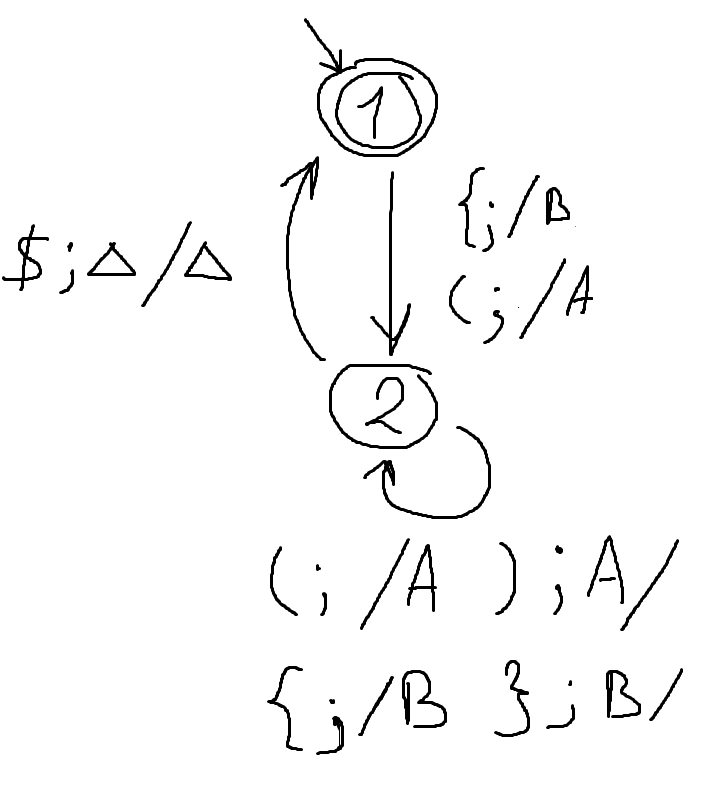 1
{;/B
$;△/△
(;/A
2
(;/A );A/
{;/B };B/